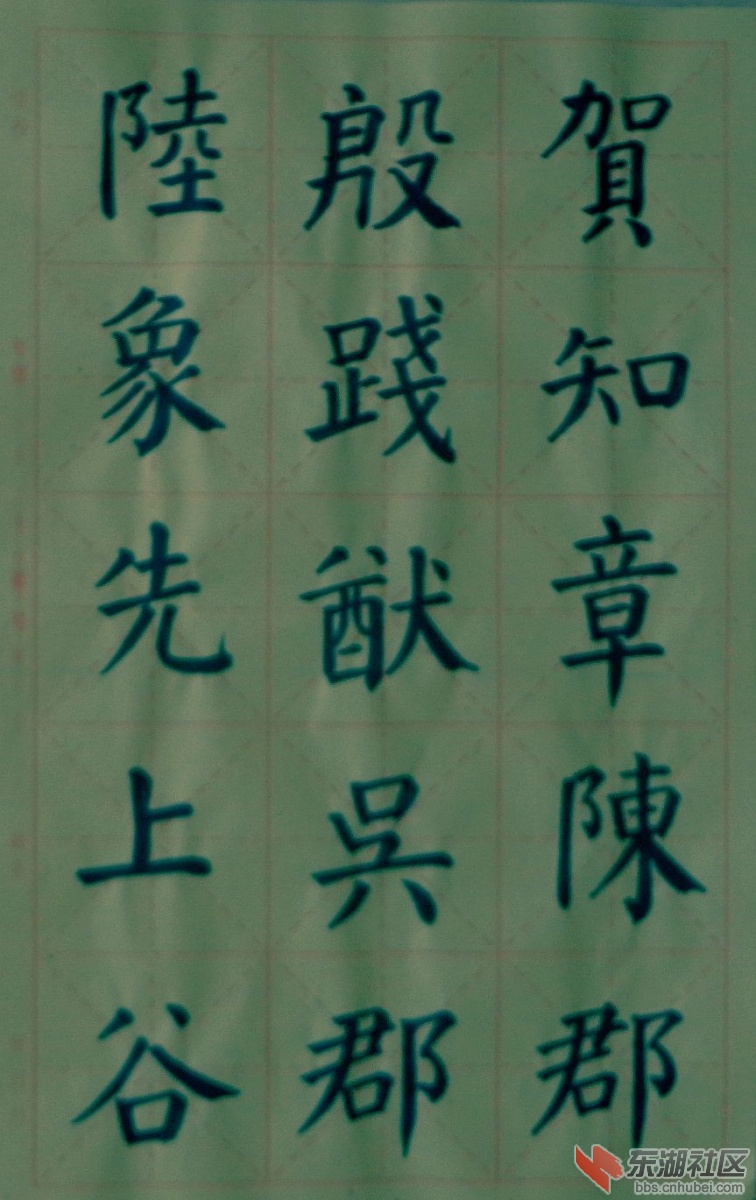 賀知章陳郡
殷踐猷吳郡
陸象先上谷
东湖社区
bbs.cnhubei.com